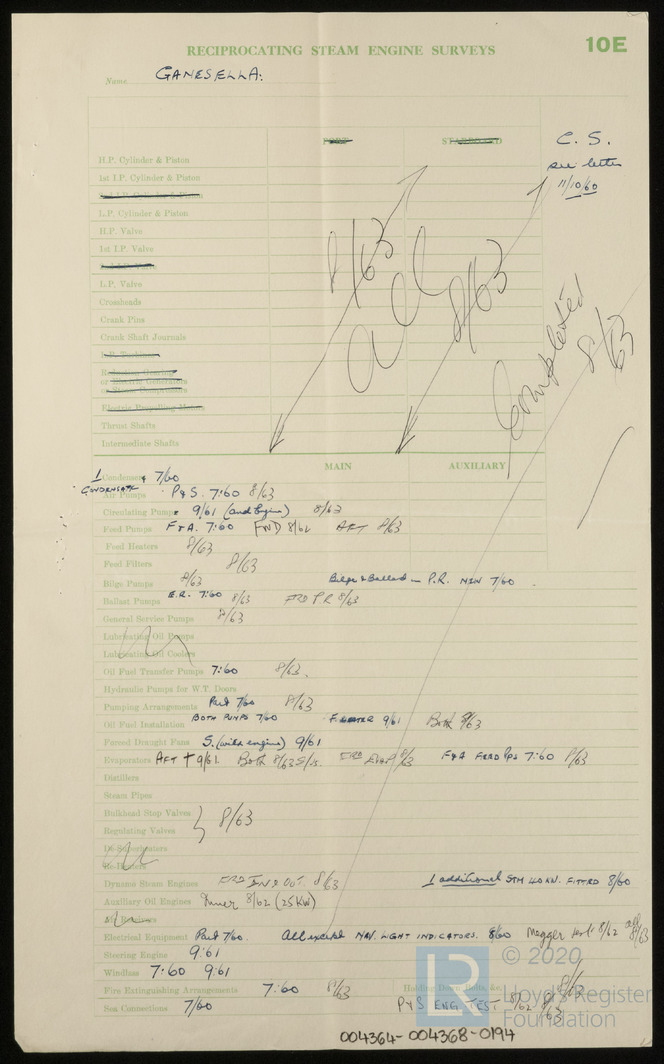 RECIPROCATING STEAM ENGINE SURVEYS 10E
Name GANESELLA.
PORT STARBOARD C. S.
see letter
11/10/60
H.P. Cylinder & Piston
1st I.P. Cylinder & Piston
2nd I.P. Cylinder & Piston
L.P. Cylinder & Piston
H.P. Valve
1st I.P. Valve
2nd I.P. Valve
L.P. Valve
8/63 all 8/63
Completed 8/63
Crossheads
Crank Pins
Crank Shaft Journals
L.P. Turbines
Reduction Gearing
or Electric Generators
or Steam Compressors
Electric Propelling Motors
Thrust Shafts
Intermediate Shafts
MAIN AUXILIARY
1 Condenser 7/60
CONDENSATE Air Pumps P & S. 7:60 8/63
Circulating Pumps 9/61 (and Engine) 8/63
Feed Pumps F & A. 7:60 FWD 8/62 AFT 8/63
Feed Heaters 8/63
Feed Filters 8/63
Bilge Pumps 8/63 Bilge & Ballast - P.R. NEW 7/60
Ballast Pumps E.R. 7:60 8/63 FRD P.R 8/63
General Service Pumps 8/63
Lubricating Oil Pumps
Lubricating Oil Coolers
Oil Fuel Transfer Pumps 7:60 8/63.
Hydraulic Pumps for W.T. Doors
Pumping Arrangements Part 7/60 8/63
Oil Fuel Installation BOTH PUMPS 7/60 F. HEATER 9/61 Both 8/63
Forced Draught Fans S. (with engine) 9/61
Evaporators AFT + 9/61. Both 8/63 FRD EVAP 8/63 F & A FEED PPS 7:60 8/63
Distillers
Steam Pipes
Bulkhead Stop Valves
Regulating Valves 8/63
De-Superheaters
Re-heaters
Dynamo Steam Engines FRD INN & OUT. 8/63 1 additional STM 40 KW. FITTED 8/60
Auxiliary Oil Engines Inner 8/62 (25 KW)
Air Receivers
Electrical Equipment Part 7/60. All except NAV. LIGHT INDICATORS. 8/60 Megger test 8/62 all 8/63
Steering Engine 9:61
Windlass 7:60 9/61
Fire Extinguishing Arrangements 7:60 8/63 Holding Down Bolts, &c. 8/63
Sea Connections 7/60 P & S ENG TEST 8/62 8/63
© 2020
Lloyd's Register
Foundation
LR
004364-004368-0194